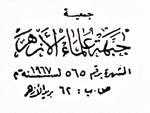 جمعية
جبهة علماء الأزهر
المشهرة برقم ٥٦٥ لسنة ١٩٦٧م
ص . ب : ٦٢ بريد الأزهر